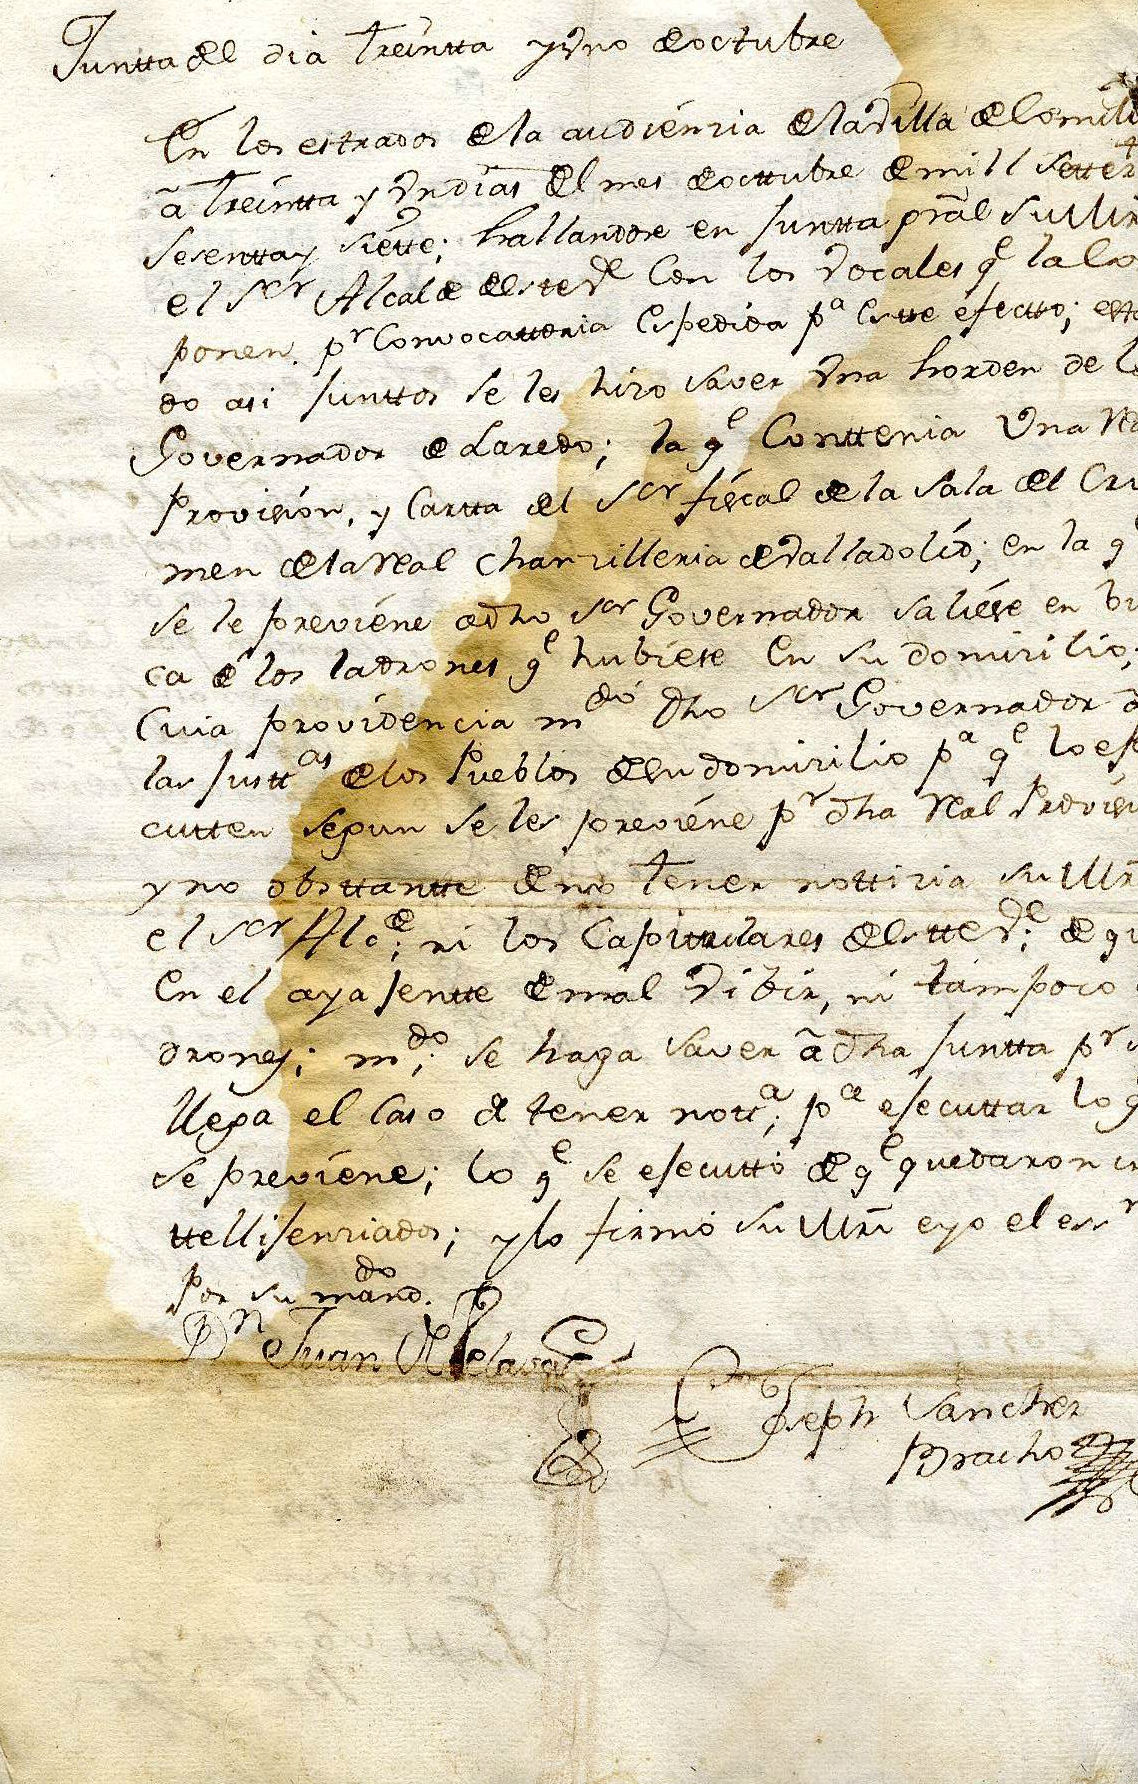 Juntta del dia treintta y Vno de octubre
En los estrados de la audienzia de la Villa de Comill
â treintta y Vn dias del mes de octtubre de mill settez
sesentta y siette; hallandose en juntta grãl su Mrd
el Scr Alcalde de este Ve Con los Vocales qe la Co
ponen. pr Convocattoria Espedida pa Estte efectto; esta
do asi junttos se les hizo saver Vna horden de l
Governador de Laredo; la qe Conttenia Vna Rl
Provision, y Cartta del Scr fiscal de la Sala del Cri
men de la Real Chanzilleria de Valladolid; en la q
se le previene a dho Scr Governador saliese en bu
ca de los ladrones qe hubiese En su domizilio;
Cuia providencia mdó dho Scr Governador a
las justtas de los Pueblos de su domizilio pa qe lo ese
cutten segun se les previene pr dha Real Provisi
y no obsttantte de no tener nottizia su Mrd
el Scr Alce; ni los Capitulares de estte Ve; de qu
En el aya jentte de mal Vibir, ni tampoco
drones; mdo; se haga saver â dha juntta pr s
llega el Caso de tener notta; pa esecuttar lo q
se previene; lo qe se esecuttó de qe quedaron in
ttellijenziados; y lo firmó su Mrd e yo el essr
Por su mando.
Dn Juan
Joseph Sanchez
Bracho